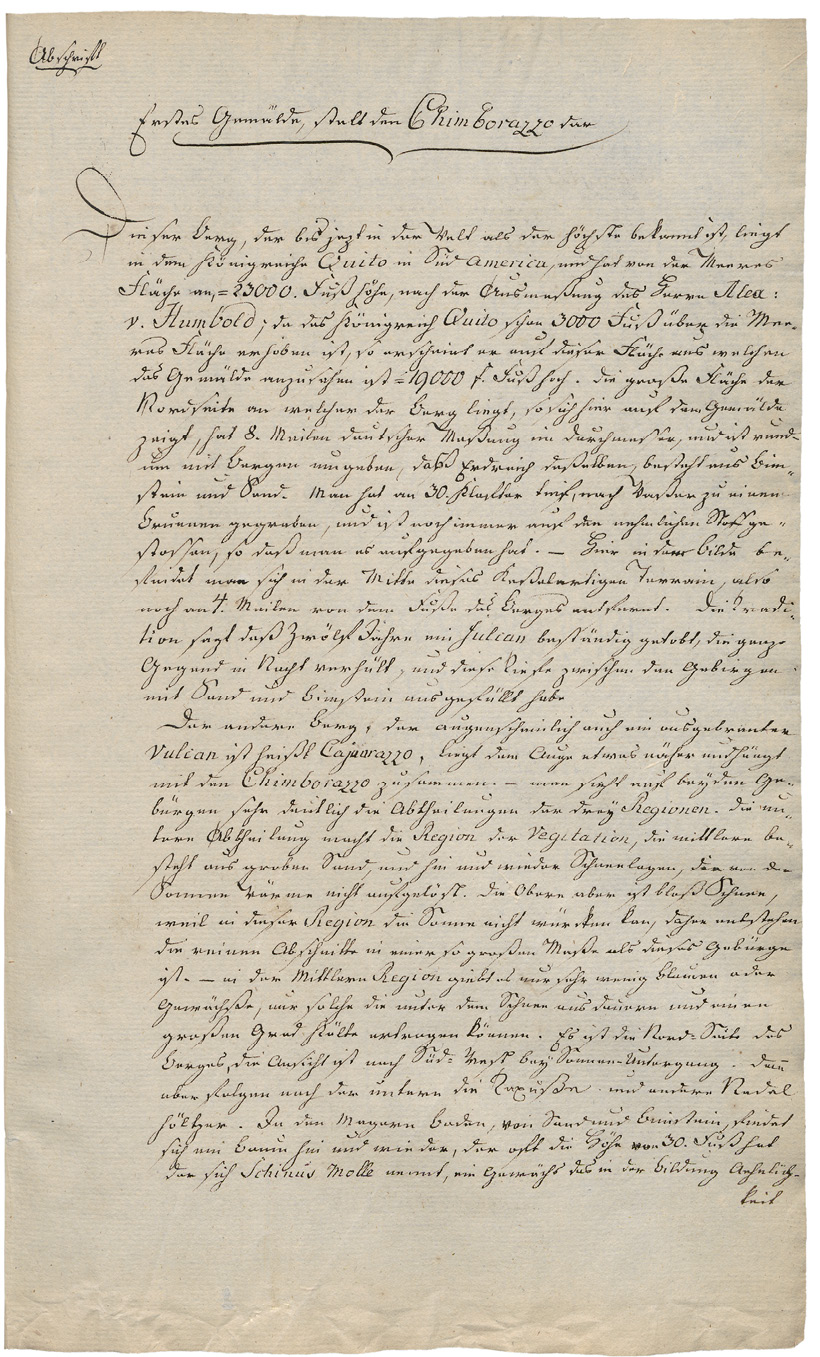 Abschrift
Erstes Gemälde, stelt den Chimborazzo dar
Dieser Berg, der bis jezt in der Welt als der höchste bekannt ist, liegt
in dem Königreiche Quito in Süd America, und hat von der Meeres
Fläche an, = 23000. Fuß höhe, nach der Ausmeßung des Herrn Alex:
v. Humbold; da das Königreich Quito schon 3000 Fuß über die Mee-
res Fläche erhoben ist, so erscheint er auf dieser Fläche aus welchen
das Gemälde anzusehen ist = 19,000 f. Fuß hoch. die große Fläche der
Nordseite an welcher der Berg liegt, so sich hier auf dem Gemälde
zeigt, hat 8. Meilen deutscher Maßung im durchmeßer, und ist rund-
um mit Bergen umgeben, daß Erdreich deßelben, besteht aus Bim-
stein und Sand. Man hat an 30. Klafter tief, nach Waßer zu einen
Brunnen gegraben, und ist noch immer auf den nehmlichen Stoff ge-
stossen, so daß man es aufgegeben hat. — Hier in dem Bilde be-
findet man sich in der Mitte dieses Keßelartigen Terrain, also
noch an 4. Meilen von dem Fuße des Berges entfernt. Die Tradi-
tion sagt daß Zwölf Jahre ein Julcan beständig getobt, die ganze
Gegend in Nacht verhült, und diese Tiefe zwischen den Gebirgen
mit Sand und Bimstein ausgefüllt habe
Der andere Berg, der augenscheinlich auch ein ausgebranter
Vulcan ist heißt Cajuarazzo, liegt dem Auge etwas näher und hängt
mit den Chimborazzo zusammen. — man sieht auf beyden Ge-
bürgen sehr deutlich die Abtheilungen der drey Regionen. die un-
tere Abtheilung macht die Region der Vegitation, die mittlere be-
steht aus groben Sand, und hin und wieder Schneelagen, der von der
Sonnen Wärme nicht aufgelöst. die Obere aber ist bloß Schnee,
weil in dieser Region die Sonne nicht würcken kan, daher entstehen
die reinen Abschnitte in einer so großen Maße als dieses Gebürge
ist. — in der Mittlern Region giebt es nur sehr wenig blumen oder
Gewächse, nur solche die unter dem Schnee aus dauern und einen
großen Grad Kälte ertragen können. Es ist die Nord-Seite des
Berges, die Ansicht ist nach Süd-West bey Sonnen-Untergang. dann
aber folgen nach der untern die Taxuße und andere Nadel
höltzer. In den Magern boden, von Sand und Bimstein, findet
sich ein Baum hin und wieder, der oft die Höhe von 30. Fuß hat
der sich Schinus Molle nennt, ein Gewächs das in der bildung Aehnlich-
keit